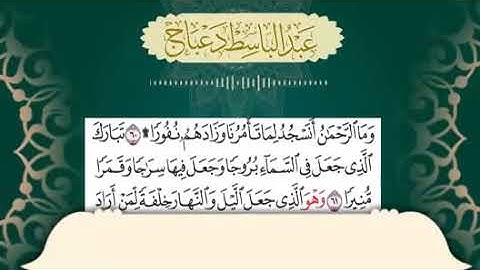 عبد الباسط دعباج
وَمَا ٱلرَّحْمَٰنُ أَنَسْجُدُ لِمَا تَأْمُرُنَا وَزَادَهُمْ نُفُورًا ۩ ٦٠ تَبَارَكَ
ٱلَّذِى جَعَلَ فِى ٱلسَّمَآءِ بُرُوجًا وَجَعَلَ فِيهَا سِرَٰجًا وَقَمَرًا
مُّنِيرًا ٦١ وَهُوَ ٱلَّذِى جَعَلَ ٱلَّيْلَ وَٱلنَّهَارَ خِلْفَةً لِّمَنْ أَرَادَ